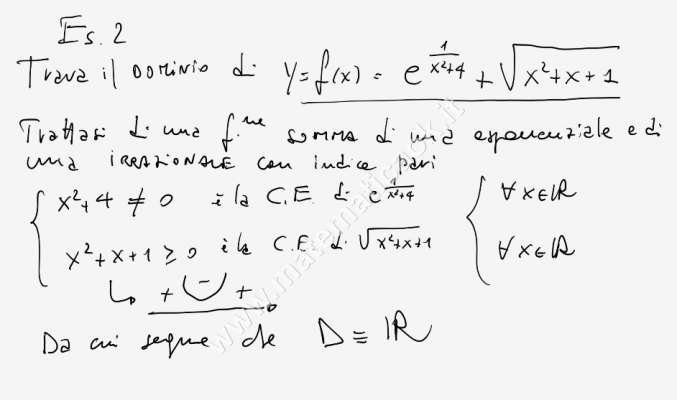 Es. 2
Trova il DOMINIO di y=f(x) = e^(1/(x²+4)) + √(x²+x+1)
Trattasi di una f.ne SOMMA di una esponenziale e di
una IRRAZIONALE con indice pari
{ x²+4 ≠ 0 è la C.E. di e^(1/(x²+4)) { ∀x∈ℝ
x²+x+1 ≥ 0 è la C.E. di √(x²+x+1) ∀x∈ℝ
↳ + − +
Da cui segue che D ≡ ℝ
www.matematicaok.it